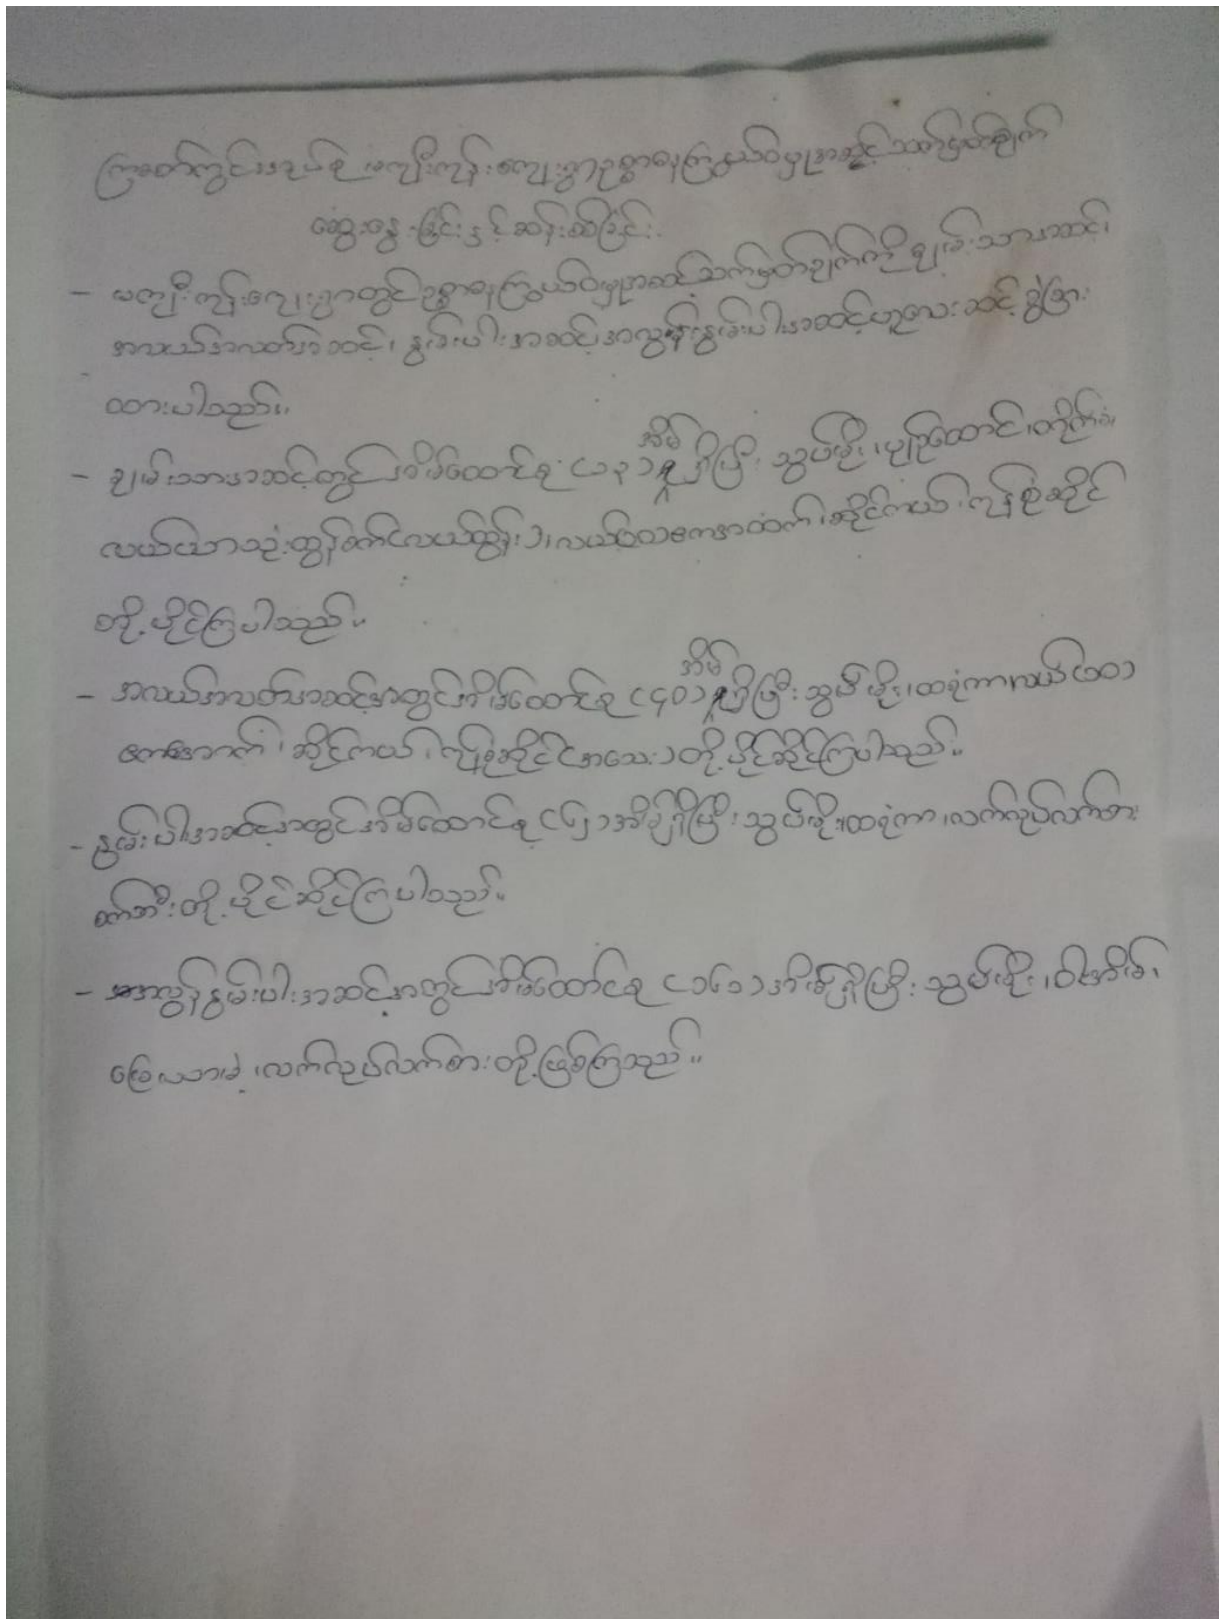 ကြခတ်ကွင်းအုပ်စု မကျီးကုန်းကျေးရွာဥစ္စာဓနကြွယ်ဝမှုအဆင့်သတ်မှတ်ချက်
ဆွေးနွေးခြင်းနှင့်ဆန်းစစ်ခြင်း
- မကျီးကုန်းကျေးရွာတွင်ဥစ္စာဓနကြွယ်ဝမှုအဆင့်သက်မှတ်ချက်ကို ချမ်းသာအဆင့်၊
အလယ်အလတ်အဆင့်၊ နွမ်းပါးအဆင့်၊အလွန်နွမ်းပါးအဆင့်ဟူ၍လေးဆင့်ခွဲခြား
ထားပါသည်။
- ချမ်းသာအဆင့်တွင်အိမ်ထောင်စု (၁၃)အိမ်ရှိပြီး သွပ်မိုး၊ပျဉ်ထောင်၊တိုက်ခံ၊
လယ်ယာသုံးထွန်စက်(လယ်ထွန်း)၊လယ်၆ဧကအထက်၊ဆိုင်ကယ်၊ကုန်စုံဆိုင်
တို့ပိုင်ကြပါသည်။
- အလယ်အလတ်အဆင့်အတွင်အိမ်ထောင်စု (၄၀)အိမ်ရှိပြီးသွပ်မိုး၊ထရံကာ၊လယ်(၁၀)
ဧကအောက်၊ ဆိုင်ကယ်၊ကုန်စုံဆိုင်(အသေး)တို့ပိုင်ဆိုင်ကြပါသည်။
- နွမ်းပါးအဆင့်အတွင်အိမ်ထောင်စု (၆၂)အိမ်ရှိပြီးသွပ်မိုး၊ထရံကာ၊လက်လုပ်လက်စား
စက်ဘီးတို့ပိုင်ဆိုင်ကြပါသည်။
- အလွန်နွမ်းပါးအဆင့်အတွင်အိမ်ထောင်စု (၁၆၁)အိမ်ရှိပြီး သွပ်မိုး၊ဝါးအိမ်၊
မြေယာမဲ့၊လက်လုပ်လက်စားတို့ဖြစ်ကြသည်။